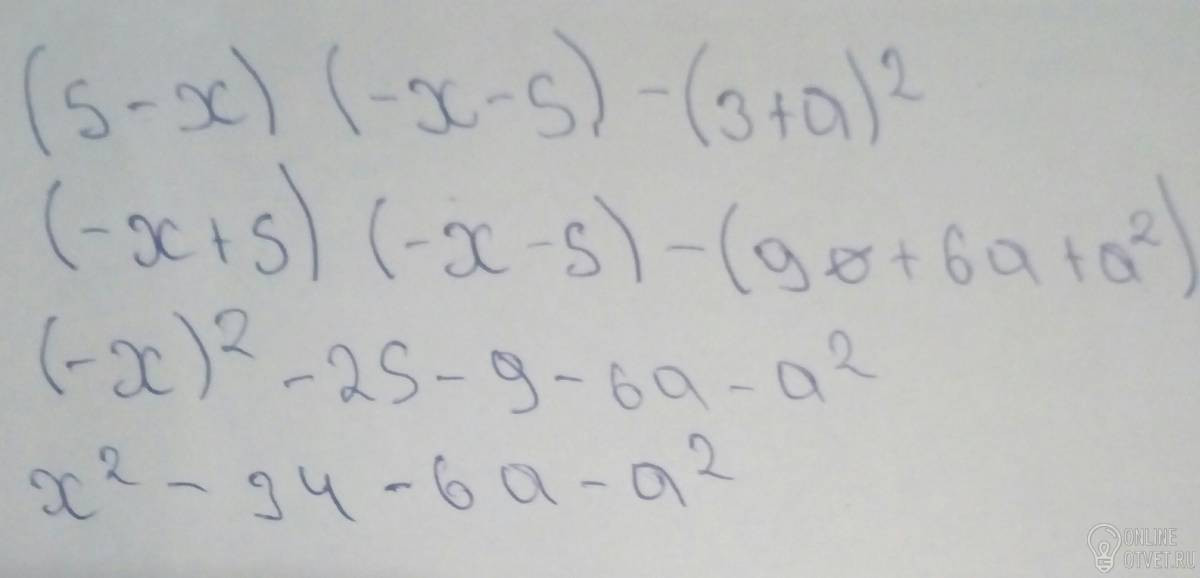 (5-x) (-x-5) -(3+a)²
(-x+5) (-x-5) -(9+6a+a²)
(-x)² -25-9-6a-a²
x² -34 -6a-a²
ONLINE
OTVET.RU